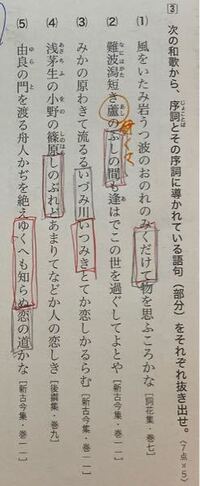 3 次の和歌から、序詞とその序詞に導かれている語句（部分）をそれぞれ抜き出せ。〈7点×5〉
じょことば
(1) 風をいたみ岩うつ波のおのれのみくだけて物を思ふころかな［詞花集・巻七］
(2) 難波潟短き蘆のふしの間も逢はでこの世を過ぐしてよとや［新古今集・巻一一］
なにはがた あし
(3) みかの原わきて流るるいづみ川いつみきとてか恋しかるらむ［新古今集・巻一一］
(4) 浅茅生の小野の篠原しのぶれどあまりてなどか人の恋しき［後撰集・巻九］
あさぢふ をの しのはら
(5) 由良の門を渡る舟人かぢを絶えゆくへも知らぬ恋の道かな［新古今集・巻一一］
ゆら と